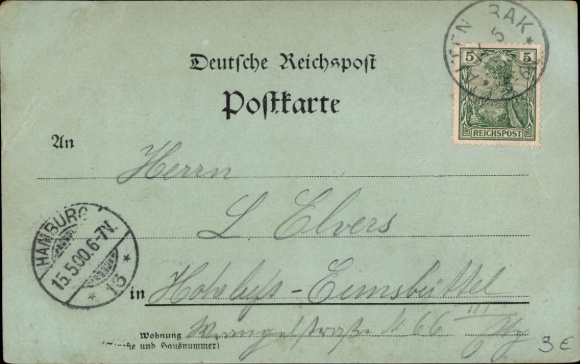 TEN RAK
5
5 5
REICHSPOST
Deutsche Reichspost
Postkarte
An Herrn
L. Elvers
HAMBURG
15.5.00.6-7N.
* 13 *
in Eimsbüttel
Wohnung Wrangelstraße N 66 III
und Hausnummer)
3 €